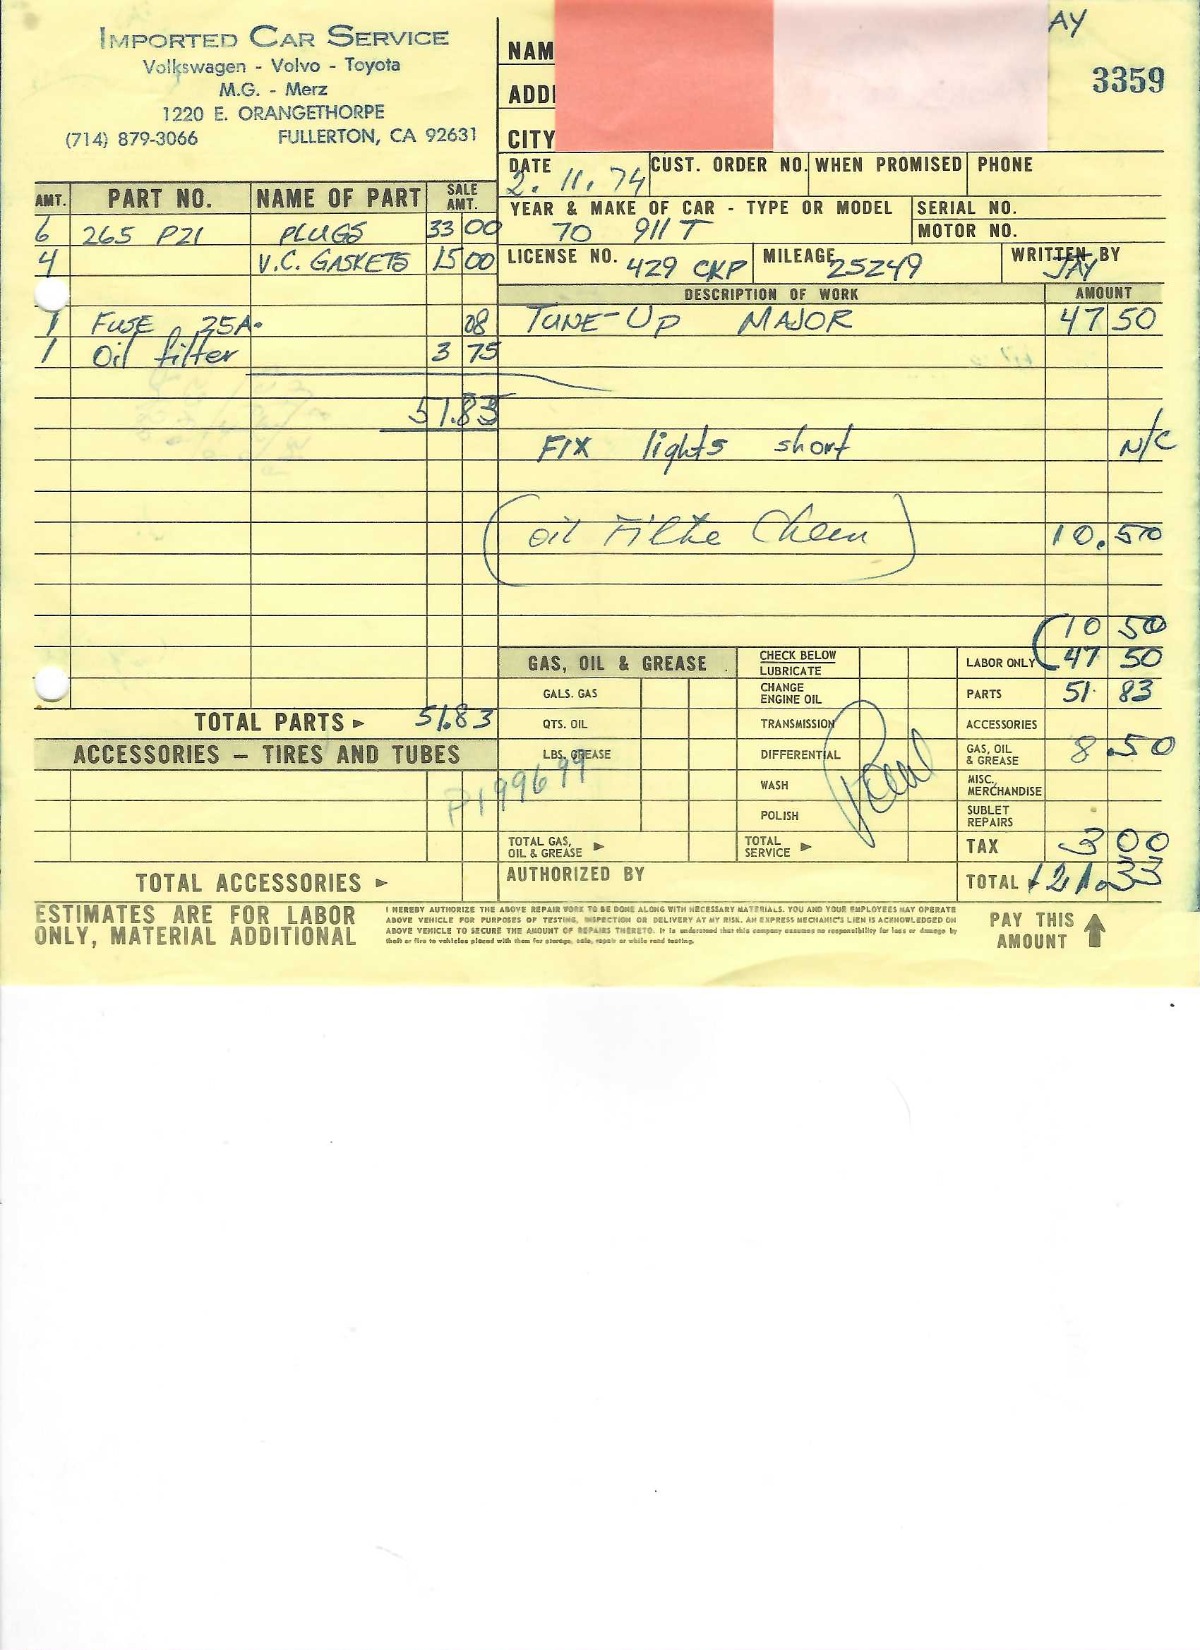 IMPORTED CAR SERVICE
Volkswagen - Volvo - Toyota
M.G. - Merz
1220 E. ORANGETHORPE
(714) 879-3066 FULLERTON, CA 92631
NAM
ADD
CITY
AY
3359
DATE 2.11.74 CUST. ORDER NO. WHEN PROMISED PHONE
YEAR & MAKE OF CAR - TYPE OR MODEL 70 911T
SERIAL NO.
MOTOR NO.
LICENSE NO. 429 CKP MILEAGE 25249 WRITTEN BY JAY
AMT. PART NO. NAME OF PART SALE AMT.
6 265 P21 PLUGS 33 00
4 V.C. GASKETS 15 00
1 FUSE 25A. 08
1 Oil filter 3 75
51.83
TOTAL PARTS 51.83
ACCESSORIES - TIRES AND TUBES
TOTAL ACCESSORIES
ESTIMATES ARE FOR LABOR
ONLY, MATERIAL ADDITIONAL
DESCRIPTION OF WORK AMOUNT
TUNE-UP MAJOR 47 50
FIX lights short N/C
(Oil Filte ) 10.50
10 50
LABOR ONLY 47 50
PARTS 51. 83
ACCESSORIES
GAS, OIL & GREASE 8.50
MISC. MERCHANDISE
SUBLET REPAIRS
TAX 3 00
TOTAL 121.33
GAS, OIL & GREASE
GALS. GAS
QTS. OIL
LBS. GREASE
P199699
TOTAL GAS, OIL & GREASE
CHECK BELOW
LUBRICATE
CHANGE ENGINE OIL
TRANSMISSION
DIFFERENTIAL
WASH
POLISH
TOTAL SERVICE
Paul
AUTHORIZED BY
I HEREBY AUTHORIZE THE ABOVE REPAIR WORK TO BE DONE ALONG WITH NECESSARY MATERIALS. YOU AND YOUR EMPLOYEES MAY OPERATE
ABOVE VEHICLE FOR PURPOSES OF TESTING, INSPECTION OR DELIVERY AT MY RISK. AN EXPRESS MECHANIC'S LIEN IS ACKNOWLEDGED ON
ABOVE VEHICLE TO SECURE THE AMOUNT OF REPAIRS THERETO. It is understood that this company assumes no responsibility for loss or damage by
theft or fire to vehicles placed with them for storage, sale, repair or while road testing.
PAY THIS
AMOUNT